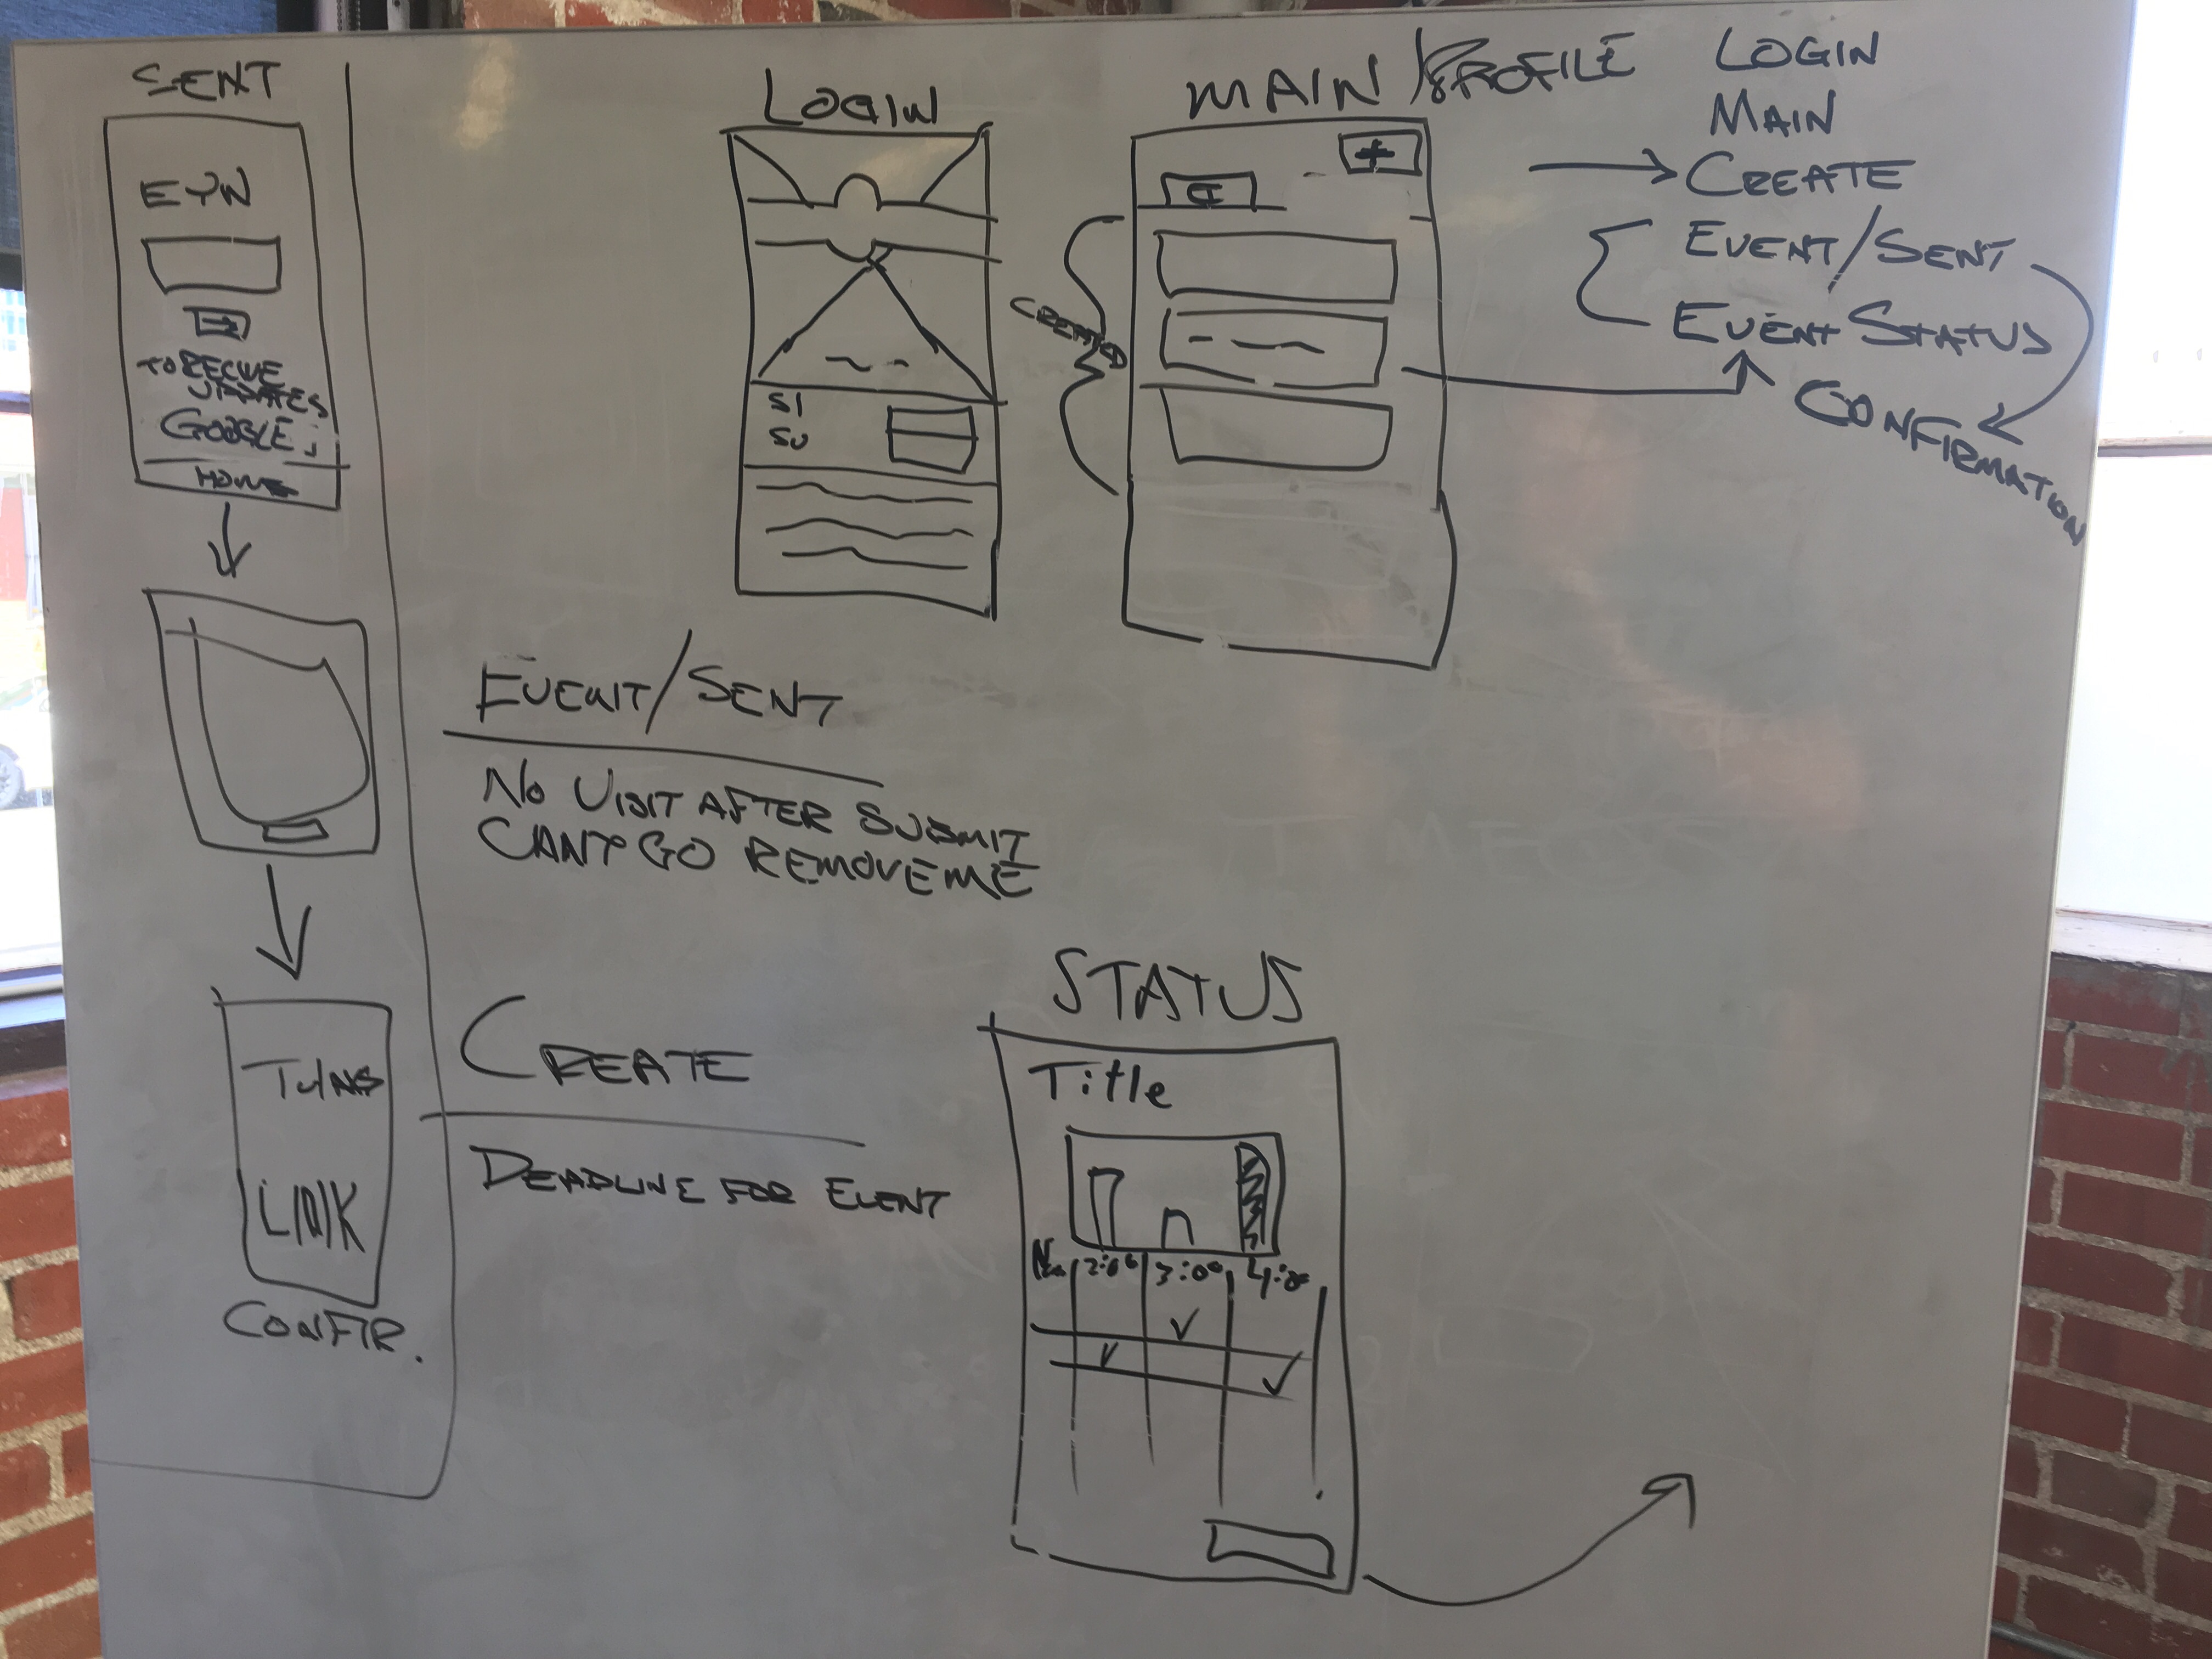 SENT
EYN
TO RECIVE
UPDATES
GOOGLE
HOME
LINK
CONFIR.
LOGIN
SI
SU
MAIN/PROFILE
+
CREATED
LOGIN
MAIN
CREATE
EVENT/SENT
EVENT STATUS
CONFIRMATION
EVENT/SENT
NO VISIT AFTER SUBMIT
CANT GO REMOVE ME
CREATE
DEADLINE FOR EVENT
STATUS
Title
2:00 3:00 4:00